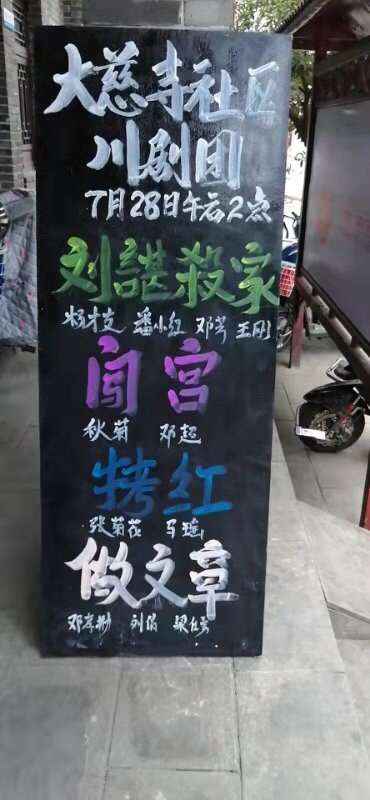 大慈寺社区
川剧团
7月28日午后2点
刘諶殺家
杨才枝 潘小红 邓芳 王刚
闯宫
秋菊 邓超
拷红
张菊花 马瑶
做文章
邓孝荆 刘俏